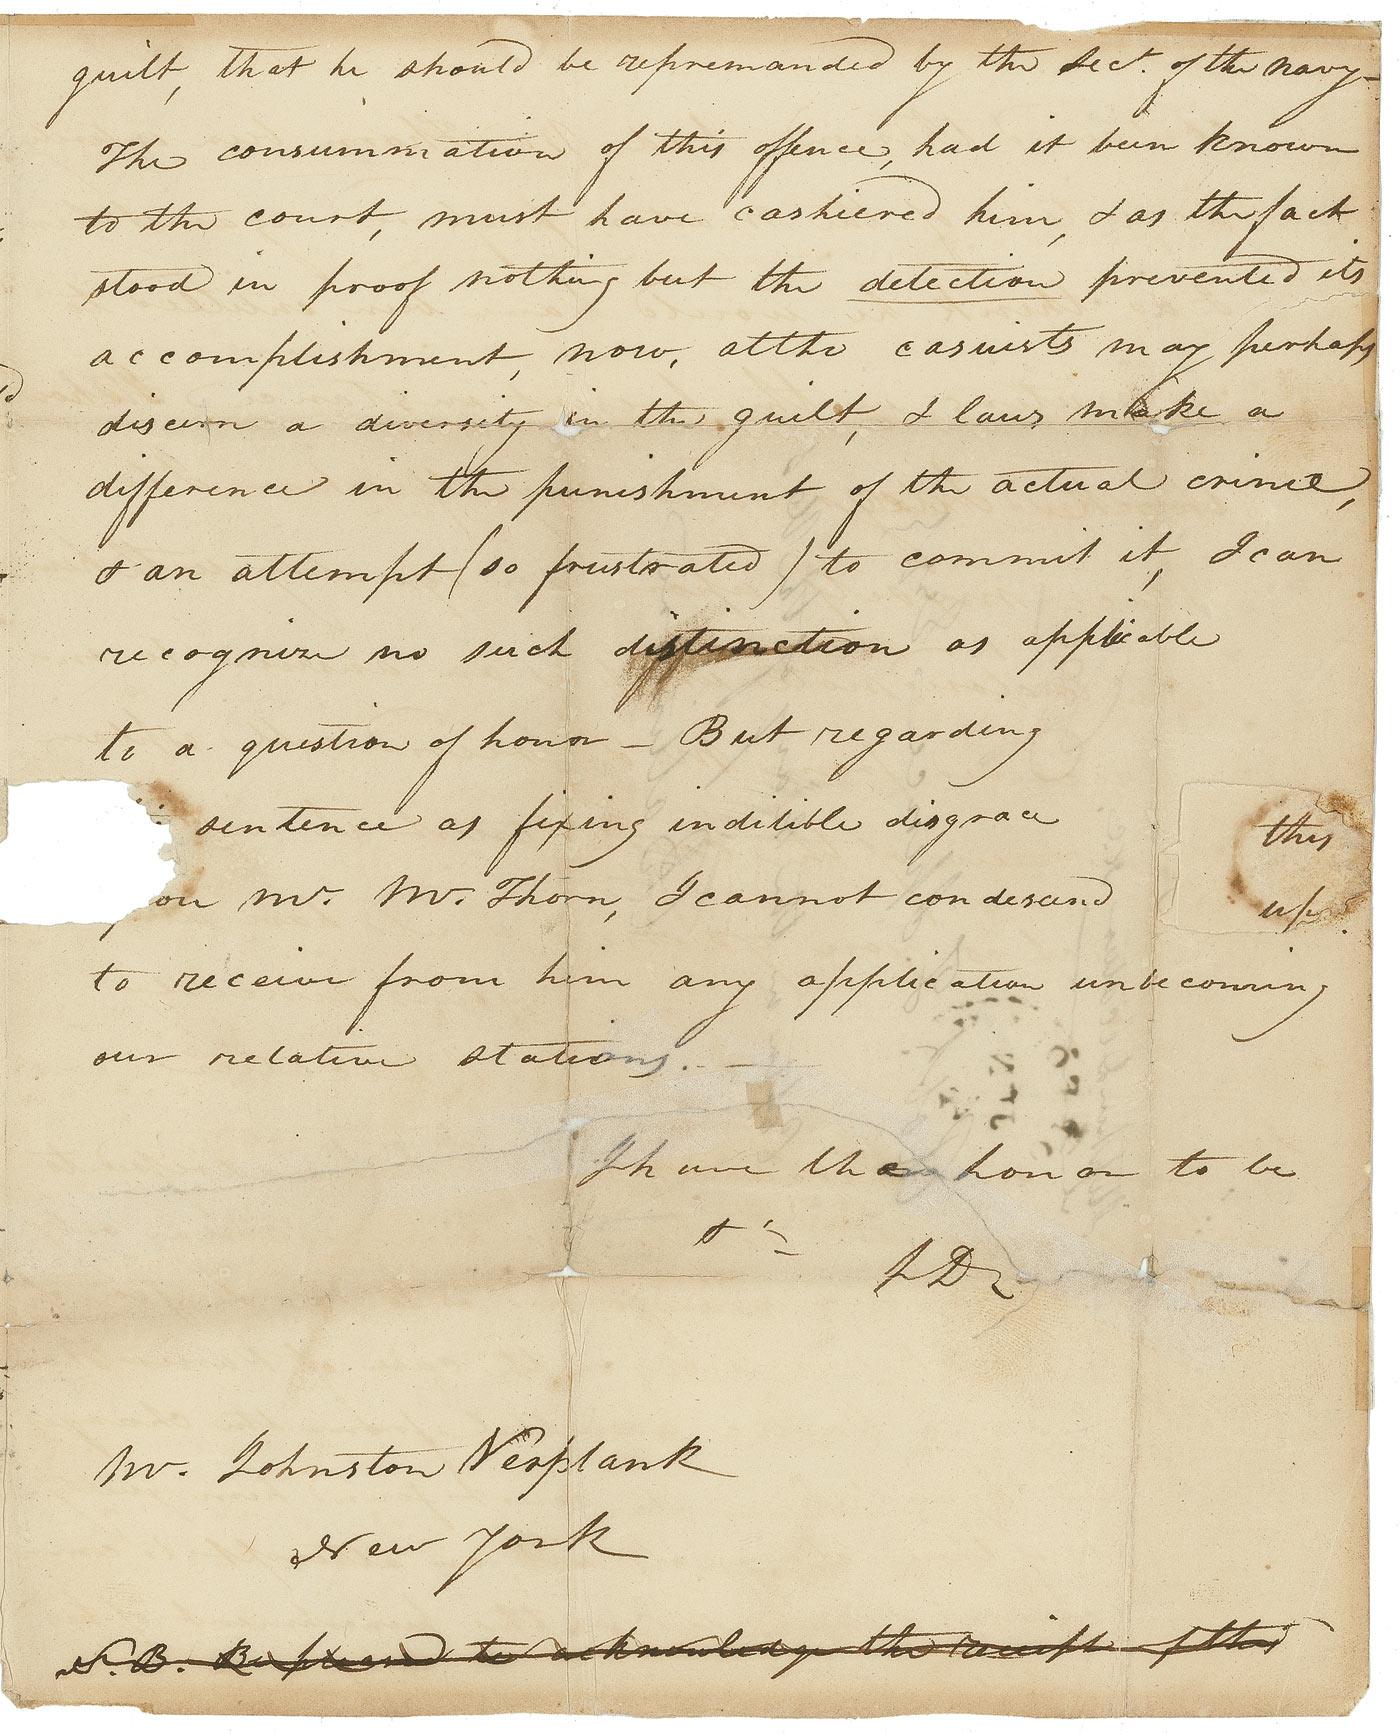 guilt, that he should be repremanded by the Sect. of the navy-
The consummation of this offence, had it been known
to the court, must have cashiered him, & as the fact
stood in proof nothing but the detection prevented its
accomplishment, now, altho casuists may perhaps
discern a diversity in the guilt, & laws make a
difference in the punishment of the actual crime,
& an attempt (so frustrated) to commit it, I can
recognize no such distinction as applicable
to a question of honor – But regarding
sentence as fixing indilible disgrace
on Mr. Mc. Thorn, I cannot condescend
this
up
to receive from him any application unbecoming
our relative stations. —
I have the honor to be
&c
JD
Mr. Johnston Verplank
New York
N.B. Be pleased to acknowledge the receipt of this